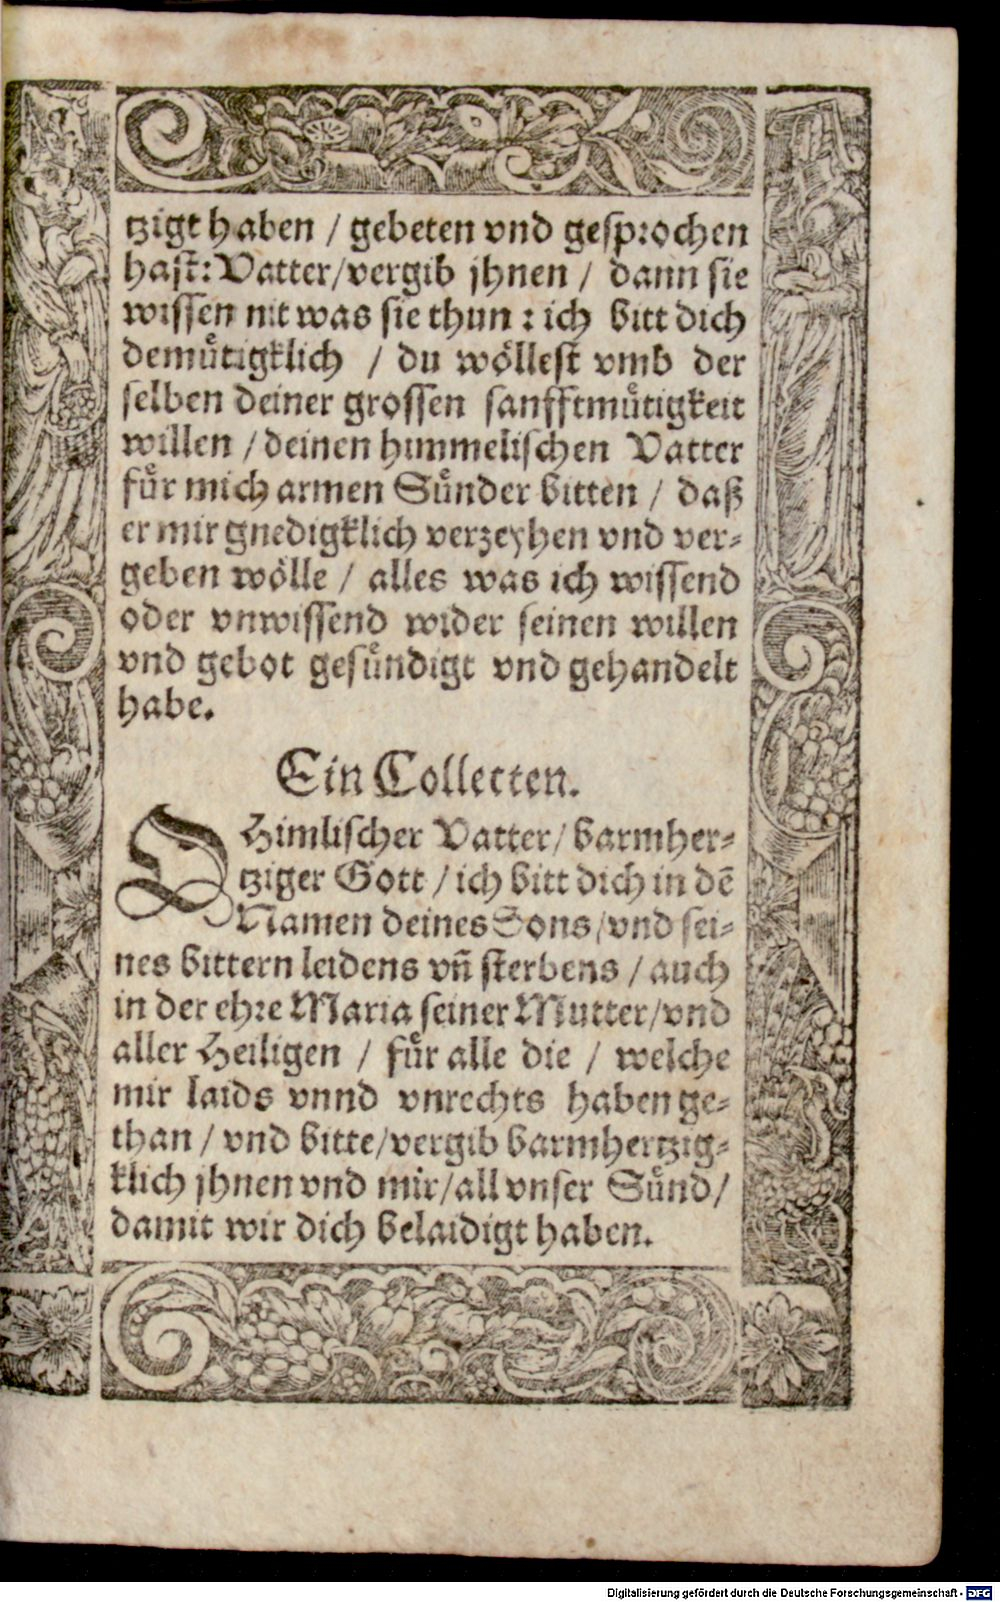 tzigt haben / gebeten vnd gesprochen
hast: Vatter/vergib jhnen / dann sie
wissen nit was sie thun : ich bitt dich
demuͤtigklich / du woͤllest vmb der
selben deiner grossen sanfftmuͤtigkeit
willen / deinen himmelischen Vatter
fuͤr mich armen Suͤnder bitten / daß
er mir gnedigklich verzeyhen vnd ver-
geben woͤlle / alles was ich wissend
oder vnwissend wider seinen willen
vnd gebot gesuͤndigt vnd gehandelt
habe.
Ein Collecten.
O Himlischer Vatter/ barmher-
tziger Gott / ich bitt dich in dē
Namen deines Sons/vnd sei-
nes bittern leidens vñ sterbens / auch
in der ehre Maria seiner Mutter/vnd
aller Heiligen / fuͤr alle die / welche
mir laids vnnd vnrechts haben ge-
than / vnd bitte/vergib barmhertzig-
klich jhnen vnd mir/all vnser Suͤnd/
damit wir dich belaidigt haben.
Digitalisierung gefördert durch die Deutsche Forschungsgemeinschaft - DFG